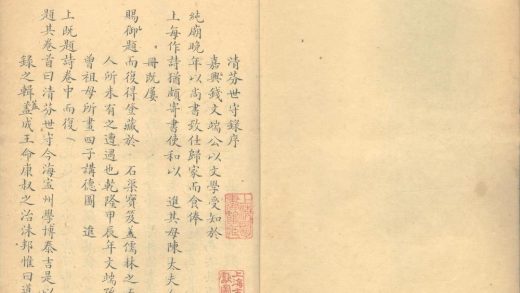 清芬世守錄序
嘉興錢文端公以文學受知於
純廟晚年以尚書致仕歸家而食俸
上每作詩猶頗寄書使和以 進其母陳太夫
冊既屢
賜御題而復得登藏於 石渠寶笈蓋儒林之
人所未有之遭遇也乾隆甲辰年文端孫
曾祖母所畫四子講德圖 進
上既題詩卷中而復
題其卷首曰清芬世守今海寧州學博泰吉是以
錄之輯蓋成王命康叔之治沬邦惟曰
上海